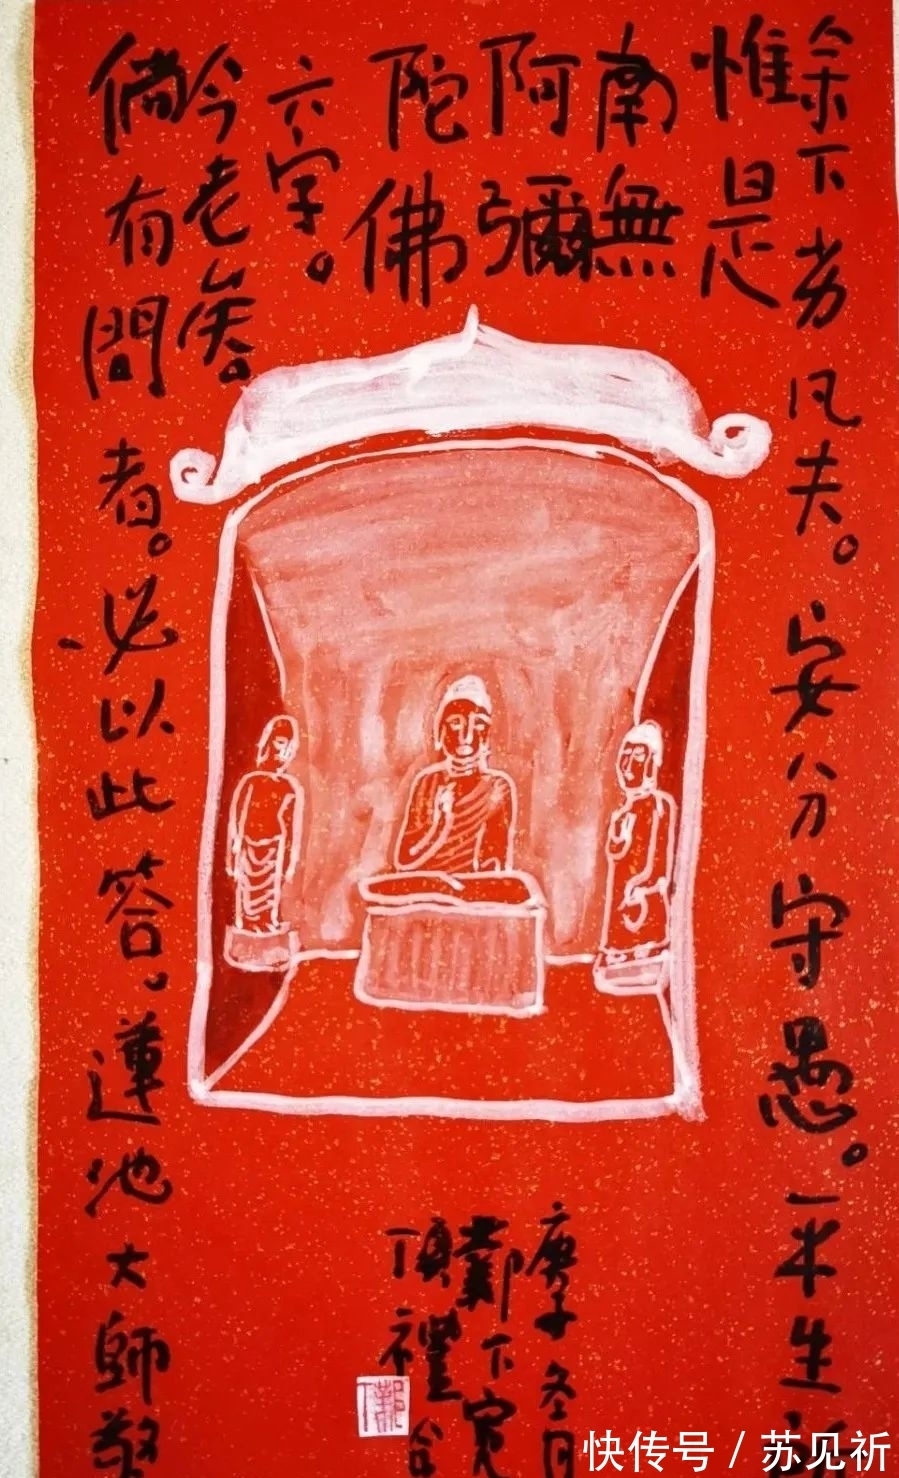 余下劣凡夫。安分守愚。平生
惟是
南無
阿彌
陀佛
六字。
今老矣。
倘有問者。必以此答。蓮池大師警
庚子冬月
下寬
頂禮合
快传号 / 苏见祈